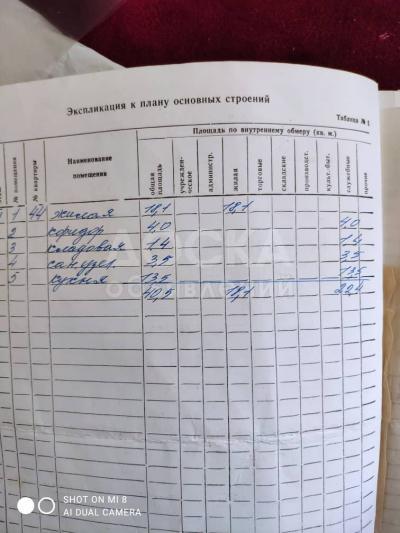 Экспликация к плану основных строений
Таблица № 1
№ помещения
№ квартиры
Наименование помещения
Площадь по внутреннему обмеру (кв. м.)
общая площадь
учрежден-ческое
администр.
жилая
торговые
складские
производст.
культ.-быт.
служебные
прочие
1 1 44 жилая 18,1 18,1
2 коридор 4,0 4,0
3 кладовая 1,4 1,4
4 сан.узел. 3,5 3,5
5 кухня 13,5 13,5
40,5 18,1 22,4
ДОСКА
ОБЪЯВЛЕНИЙ
SHOT ON MI 8
AI DUAL CAMERA